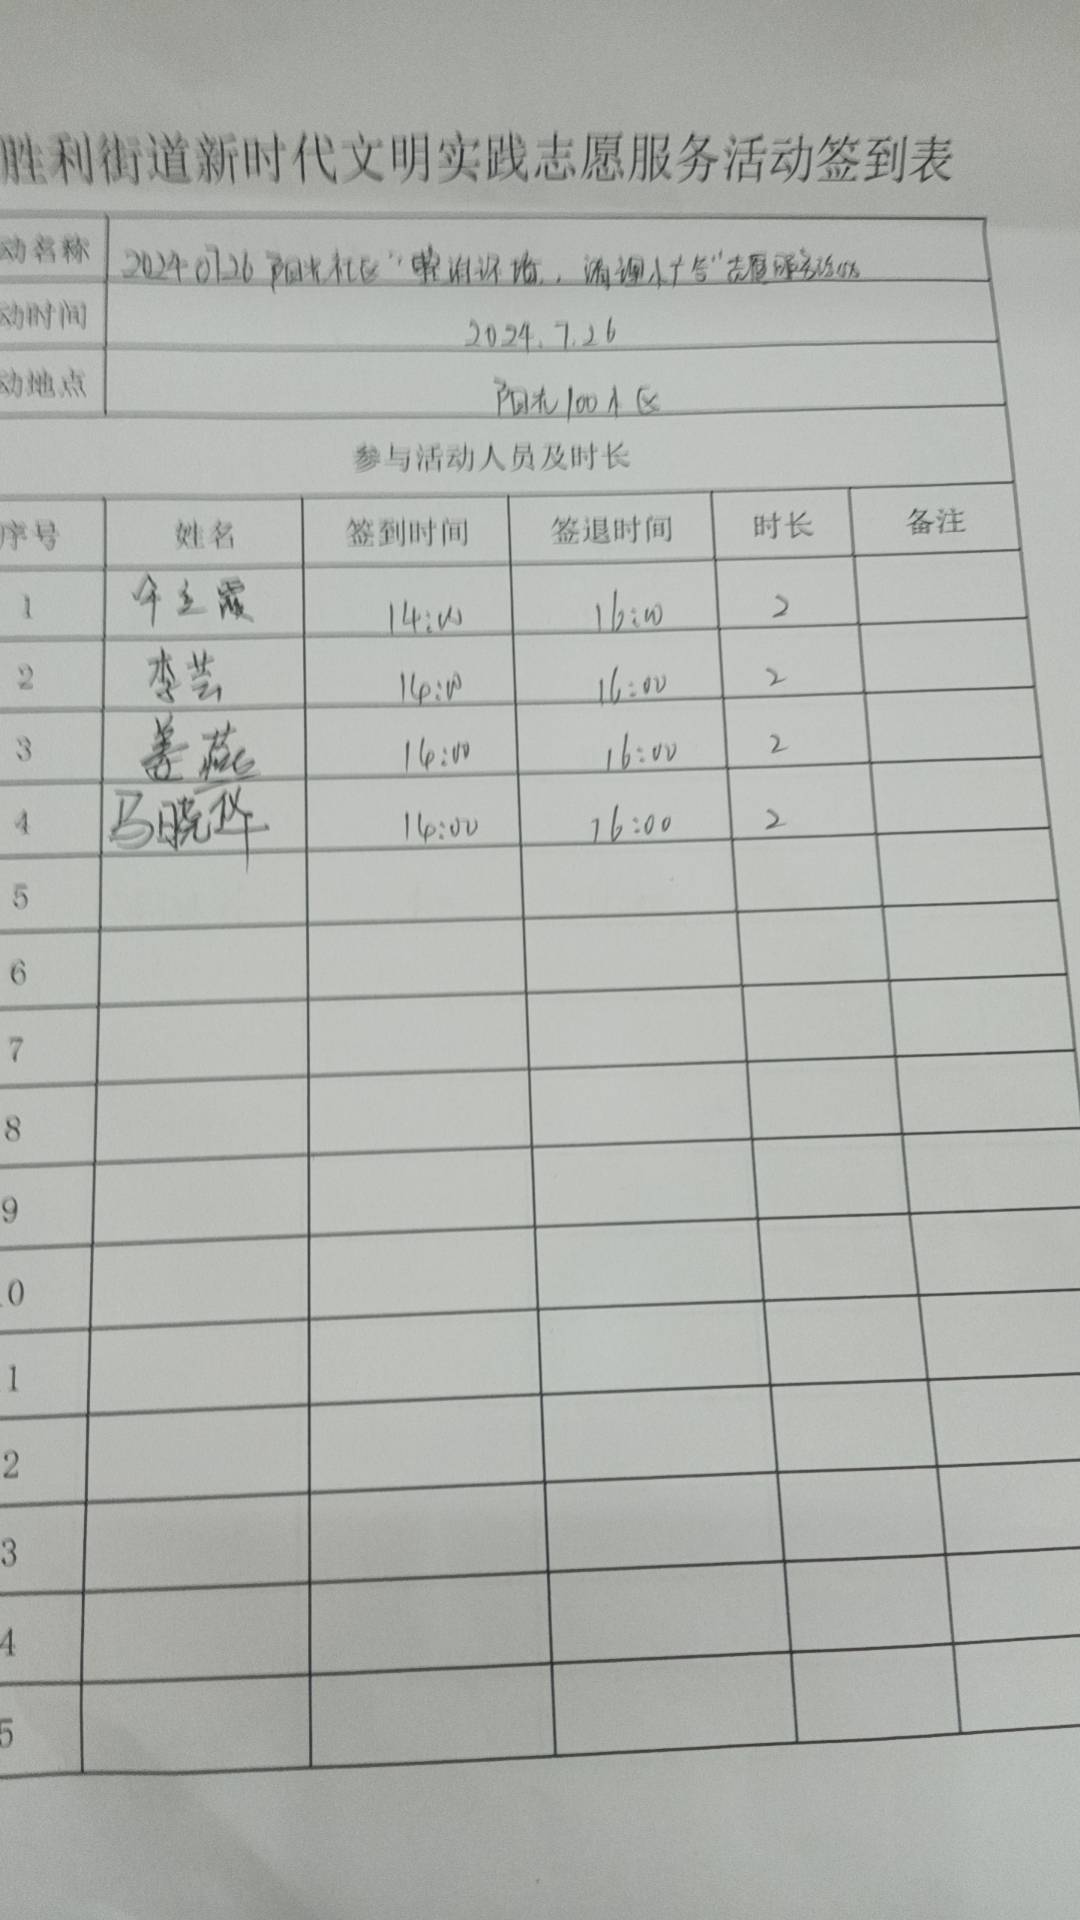 胜利街道新时代文明实践志愿服务活动签到表
动名称 20240726阳光社区"整治环境，清理小广告"志愿服务活动
动时间 2024.7.26
动地点 阳光100小区
参与活动人员及时长
序号 姓名 签到时间 签退时间 时长 备注
1 立霞 14:00 16:00 2
2 李芸 14:00 16:00 2
3 姜燕 14:00 16:00 2
4 马晓 14:00 16:00 2
5
6
7
8
9
0
1
2
3
4
5